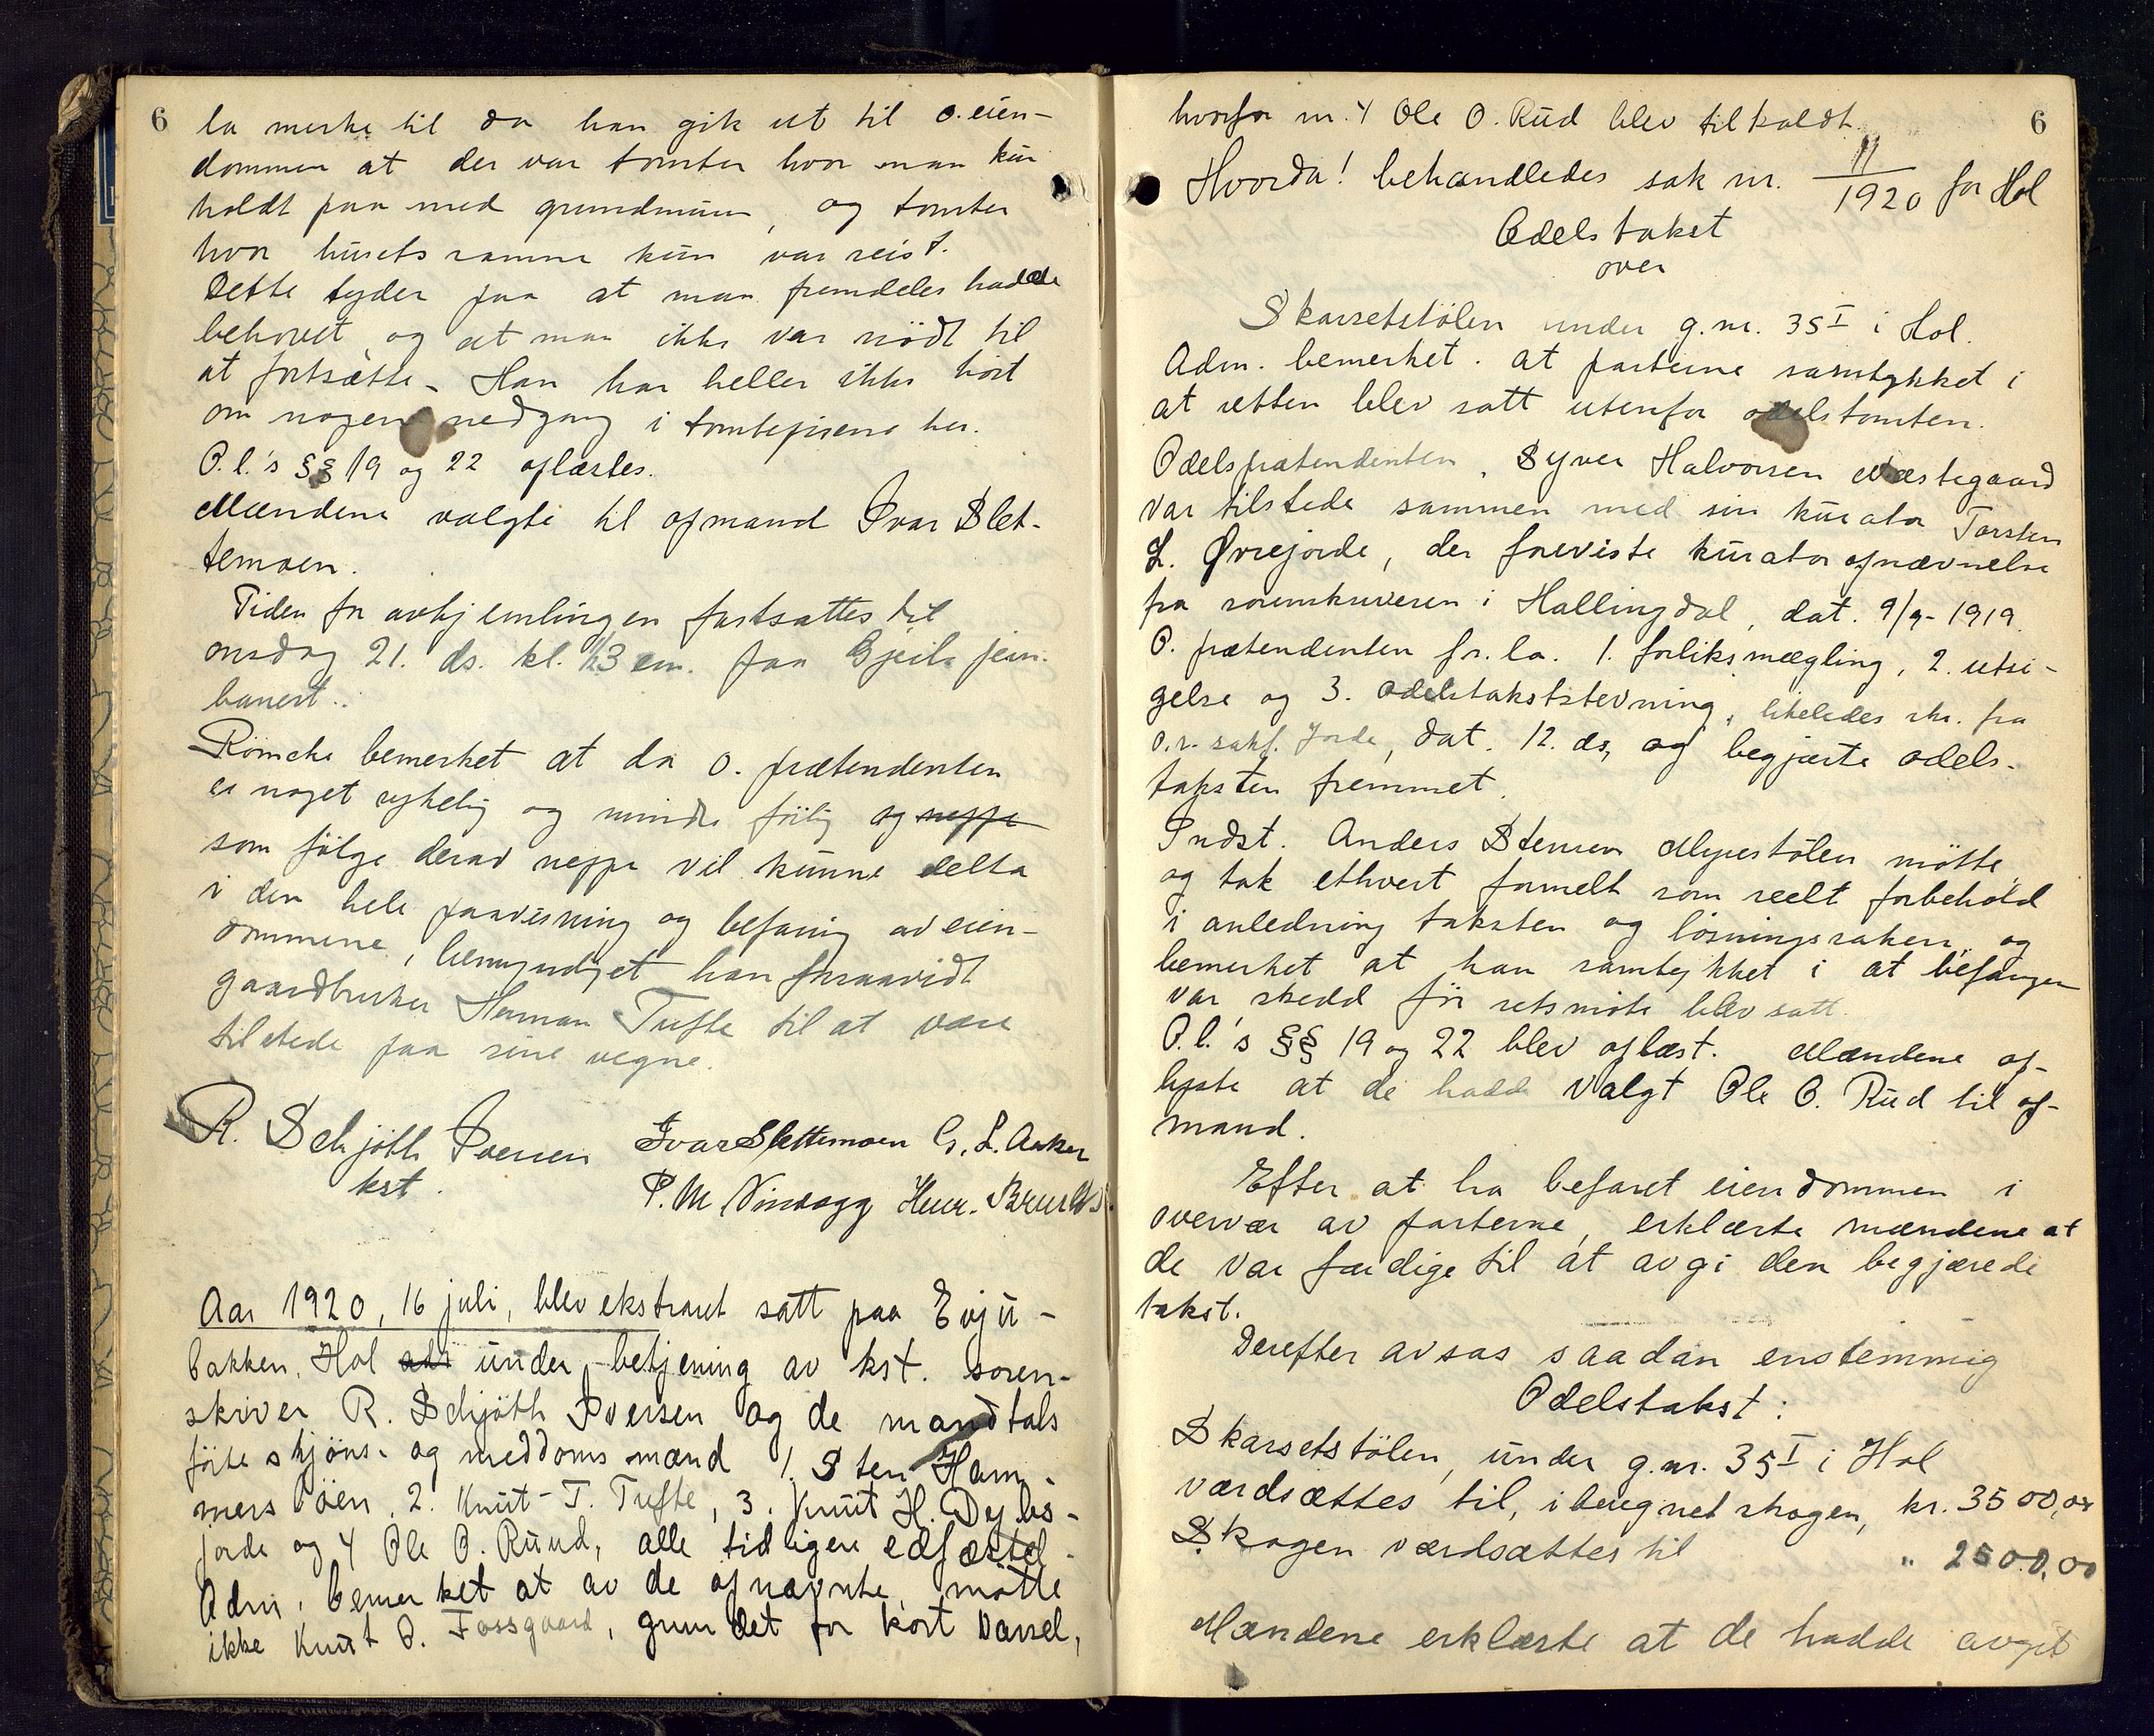 6
la merke til da han gik ut til o. eien-
dommen at der var tomter hvor man kun
holdt paa med grundmuren, og tomter
hvor husets ramme kun var reist.
Dette tyder paa at man fremdeles hadde
behovet og at man ikke var nödt til
at fortsætte. Han har heller ikke hört
om nogen nedgang i tomteprisene her.
O.l.'s §§ 19 og 22 oplæstes.
Mændene valgte til opmand Ivar Slet-
temoen.
Tiden for avhjemlingen fastsattes til
onsdag 21. ds. kl. 3 em. paa Gjeilo jern-
banest..
Römcke bemerket at da o. prætendenten
er noget sykelig og mindre før og neppe
som fölge derav neppe vil kunne delta
i den hele paavisning og befaring av eien-
dommene, bemyndiget han forsaavidt
gaardbruker Herman Tufte til at være
tilstede paa sine vegne.
R. Schjöth Iversen Ivar Slettemoen G. L. Aaker
kst. P. M.
Aar 1920, 16 juli, blev ekstraret satt paa Evju-
bakken, Hol under betjening av kst. soren-
skriver R. Schjöth Iversen og de mandtals
förte skjöns- og meddoms mænd 1. Sten Ham-
mersböen, 2. Knut T. Tufte, 3. Knut H. Dybs-
jorde og 4 Ole O. Ruud, alle tidligere edfæstet.
Adm. bemerket at av de opnævnte, mötte
ikke Knut O. Fossgaard, grundet for kort varsel,
6
hvorfor nr. 4 Ole O. Rud blev tilkaldt.
Hvorda! behandledes sak nr. 11/1920 for Hol
Odelstakst
over
Skarsetstölen under g.nr. 35 I i Hol.
Adm. bemerket at parterne samtykket i
at retten blev satt utenfor odelstomten.
Odelsprætendenten, Syver Halvorsen Næstegaard
var tilstede sammen med sin kurator Torsten
L. Øvrejorde, der foreviste kurator opnævnelse
fra sorenskriveren i Hallingdal, dat. 9/9-1919.
O. prætendenten fr. la. 1. forliksmægling, 2. utsi-
gelse og 3. odelstakststevning, likeledes skr. fra
o.r. sakf. Jorde, dat. 12. ds, og begjærte odels-
taksten fremmet.
Indst. Anders Stensen Myrestölen mötte,
og tok ethvert formelt som reelt forbehold
i anledning taksten og lösningssaken, og
bemerket at han samtykket i at befaringen
var skedd för retsmöte blev satt.
O.l.'s §§ 19 og 22 blev oplæst. Mændene op-
lyste at de hadde valgt Ole O. Rud til op-
mand.
Efter at ha befaret eiendommen i
overvær av parterne, erklærte mændene at
de var færdige til at avgi den begjærede
takst.
Derefter avsas saadan enstemmig
Odelstakst:
Skarsetstölen, under g.nr. 35 I i Hol
værdsættes til, iberegnet skogen, kr. 3500,00
Skogen værdsættes til " 2500,00
Mændene erklærte at de hadde avgit